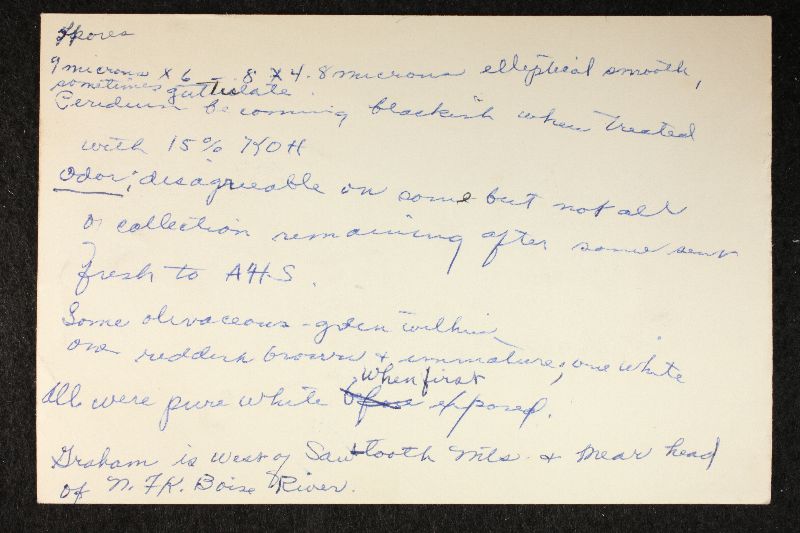 Spores
9 microns x 6 - 8 x 4.8 microns elliptical smooth,
sometimes guttulate.
Peridium becoming blackish when treated
with 15% KOH
Odor; disagreeable on some but not all
of collection remaining after some sent
fresh to AHS.
Some olivaceous-green within
one reddish brown & immature; one white
when first
All were pure white exposed.
Graham is west of Sawtooth Mts. & near head
of N. FK. Boise River.